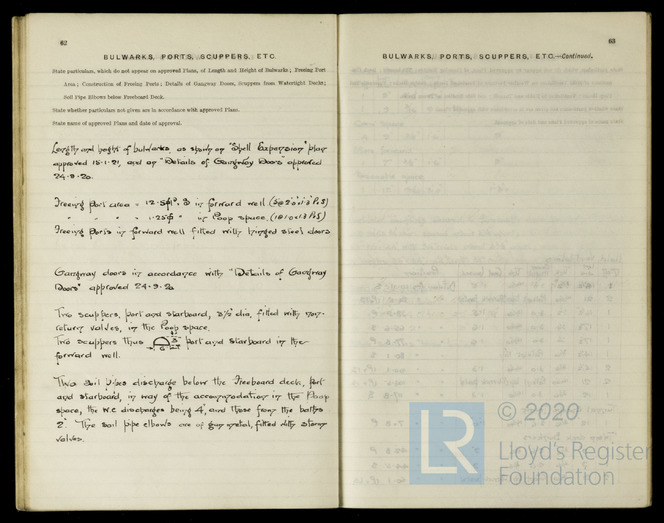 62
BULWARKS, PORTS, SCUPPERS, ETC.
State particulars, which do not appear on approved Plans, of Length and Height of Bulwarks; Freeing Port
Area; Construction of Freeing Ports; Details of Gangway Doors, Scuppers from Watertight Decks;
Soil Pipe Elbows below Freeboard Deck.
State whether particulars not given are in accordance with approved Plans.
State name of approved Plans and date of approval.
Length and height of bulwarks, as shown on "Shell Expansion" plan
approved 15-1-21, and on "Details of Gangway Doors" approved
24-9-20.
Freeing port area = 12.5 in forward well.
" " " = 1.25 " in Poop space.
Freeing ports in forward well fitted with hinged steel doors
Gangway doors in accordance with "Details of Gangway
Doors" approved 24-9-20
Two scuppers, port and starboard, 3½ dia, fitted with non-
return valves, in the Poop space.
Two scuppers thus port and starboard in the
forward well.
Two soil pipes discharge below the Freeboard deck, port
and starboard, in way of the accommodation in the Poop
space, the W.C discharges being 4", and those from the baths
2". The soil pipe elbows are of gun metal, fitted with storm
valves.
63
BULWARKS, PORTS, SCUPPERS, ETC.—Continued.
LR
© 2020
Lloyd's Register
Foundation